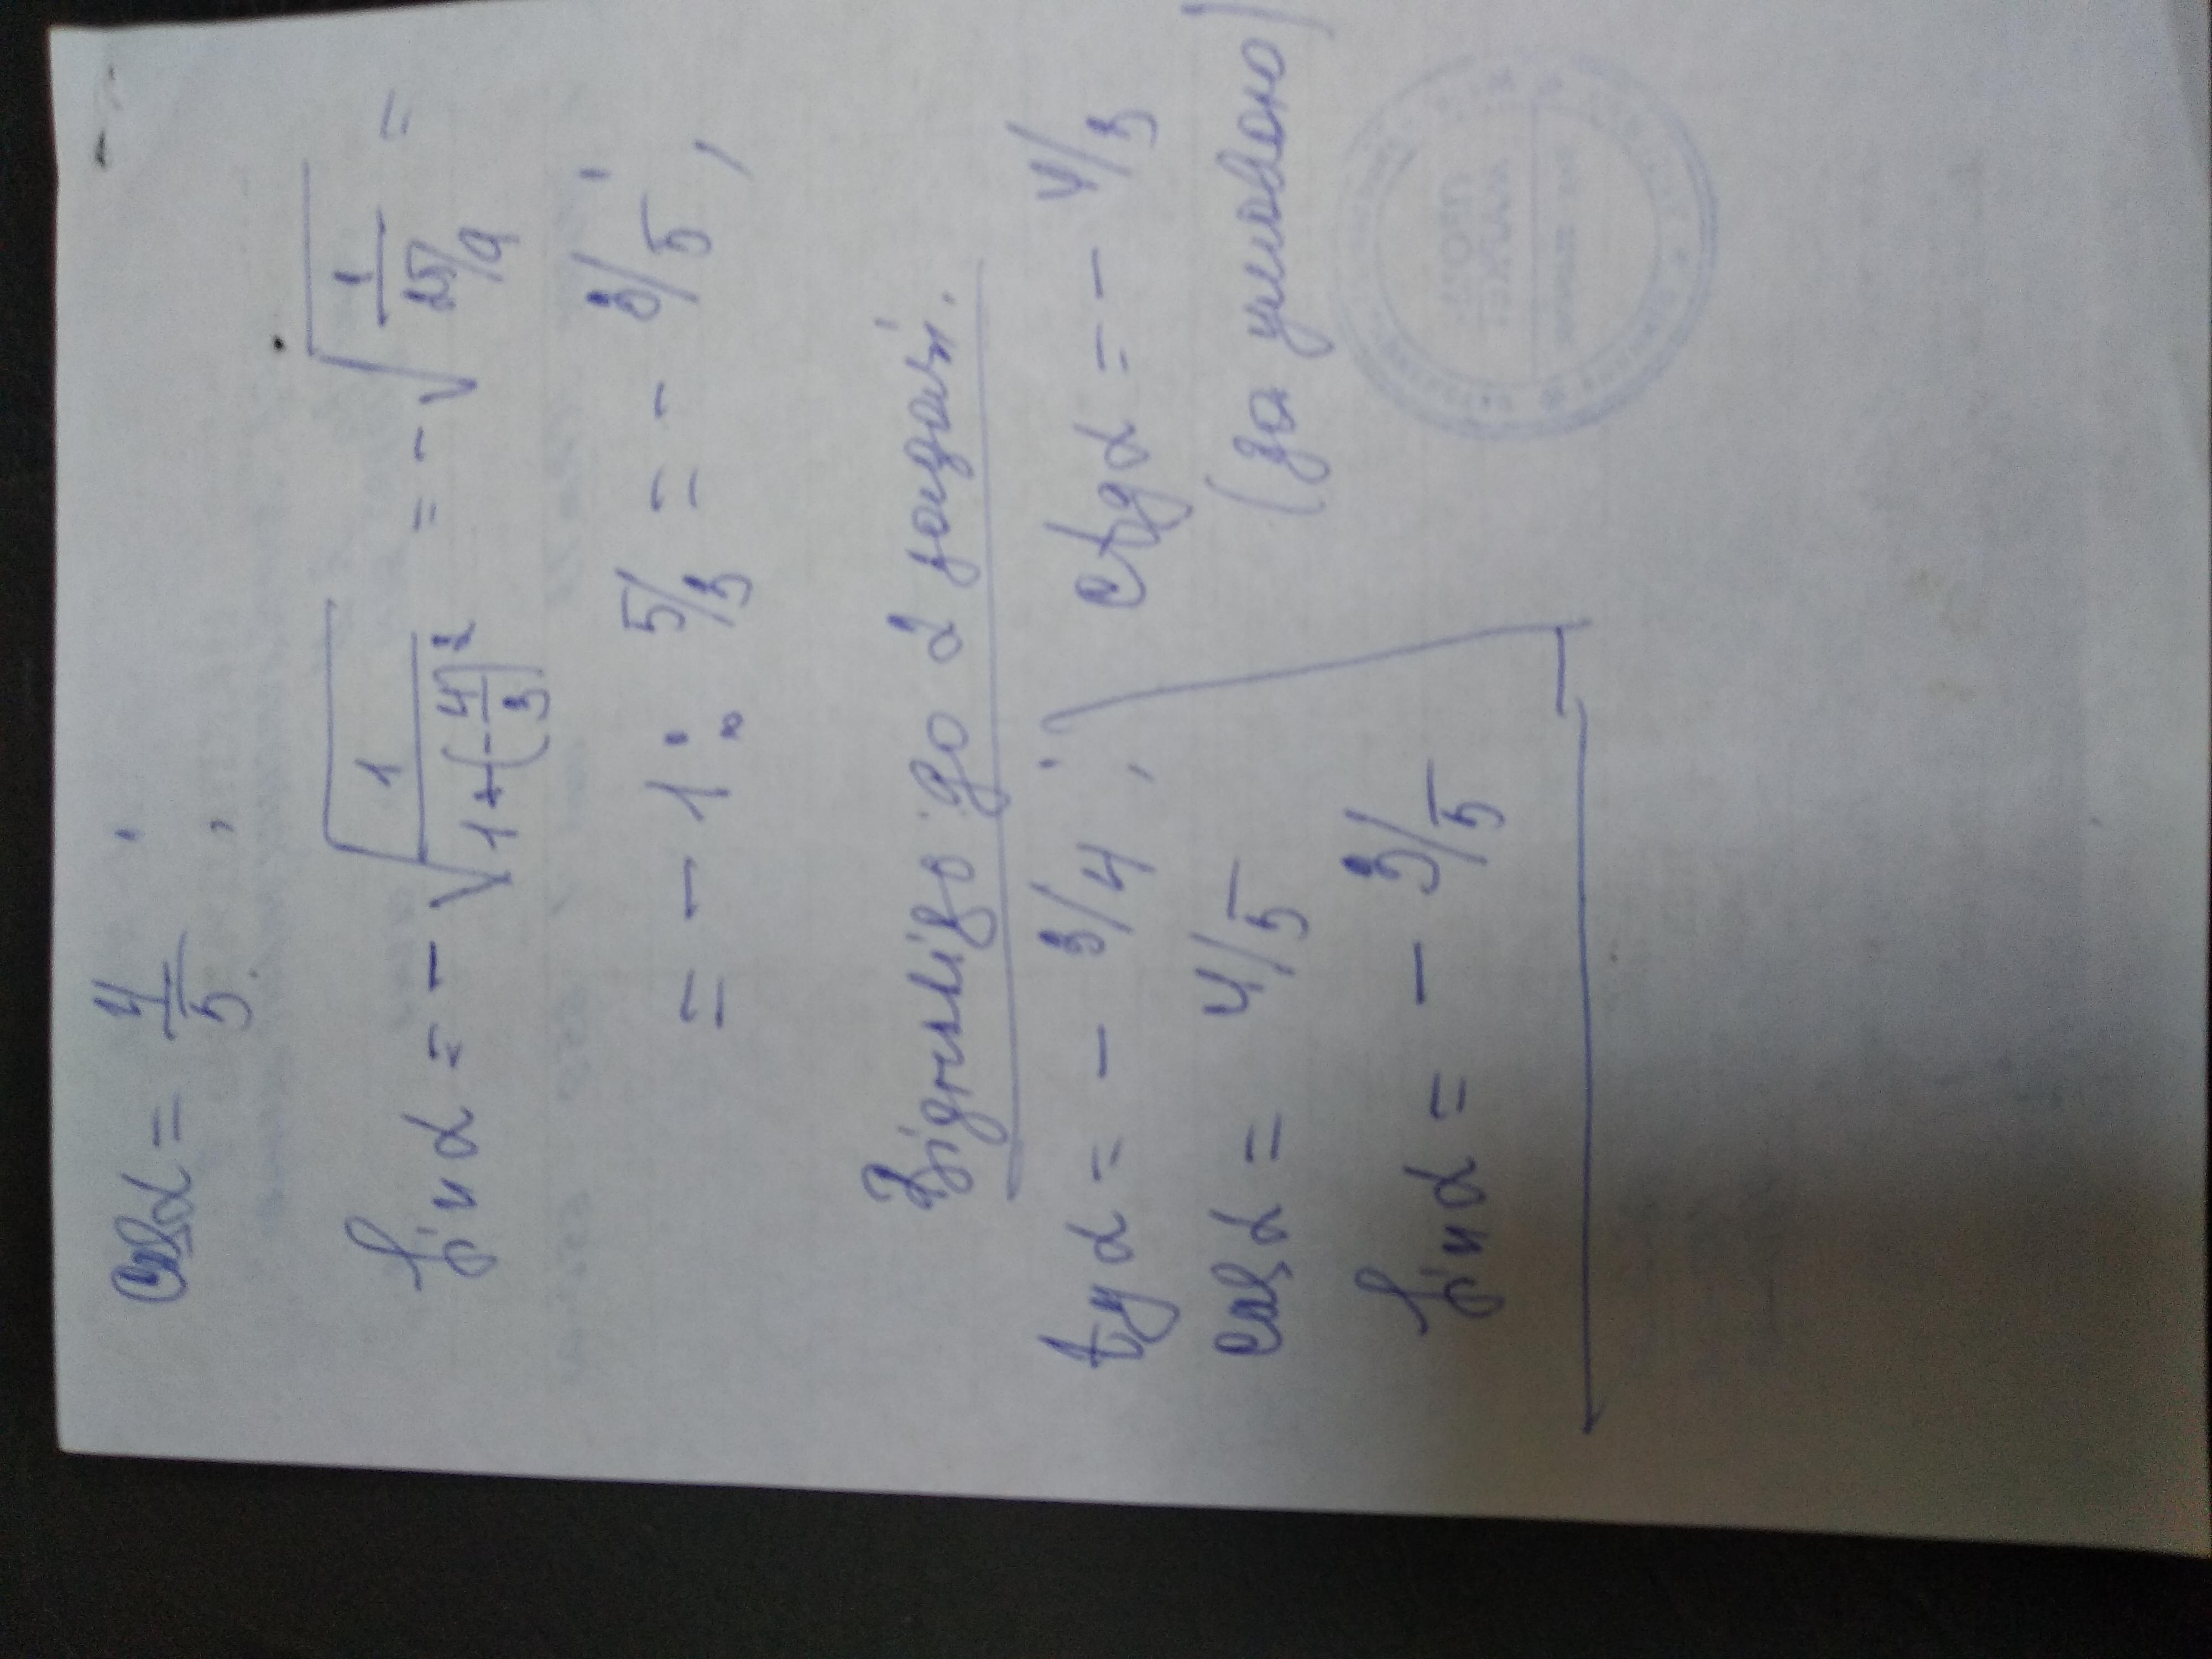 cosα = 4/5;
sinα = -√(1/(1+(-4/3)²)) = -√(1/(25/9)) =
= -1 : 5/3 = - 3/5;
Відповідь до задачі.
tgα = - 3/4; ctgα = - 4/3
cosα = 4/5 (за умовою)
sinα = - 3/5